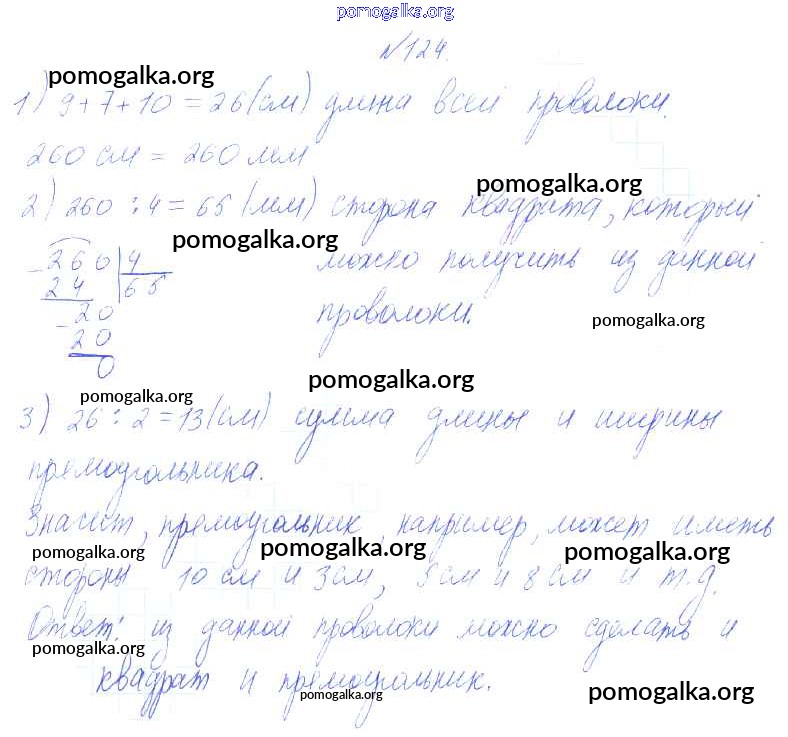 pomogalka.org
№124.
pomogalka.org
1) 9+7+10=26(см) длина всей проволоки.
260 см = 260 мм
pomogalka.org
2) 260:4=65(мм) сторона квадрата, который
pomogalka.org
можно получить из данной
проволоки.
260 4
24 65
20
20
0
pomogalka.org
pomogalka.org
pomogalka.org
3) 26:2=13(см) сумма длины и ширины
прямоугольника.
Значит, прямоугольник, например, может иметь
pomogalka.org pomogalka.org pomogalka.org
стороны 10 см и 3 см, 5 см и 8 см и т.д.
Ответ: из данной проволоки можно сделать и
pomogalka.org
квадрат и прямоугольник.
pomogalka.org pomogalka.org